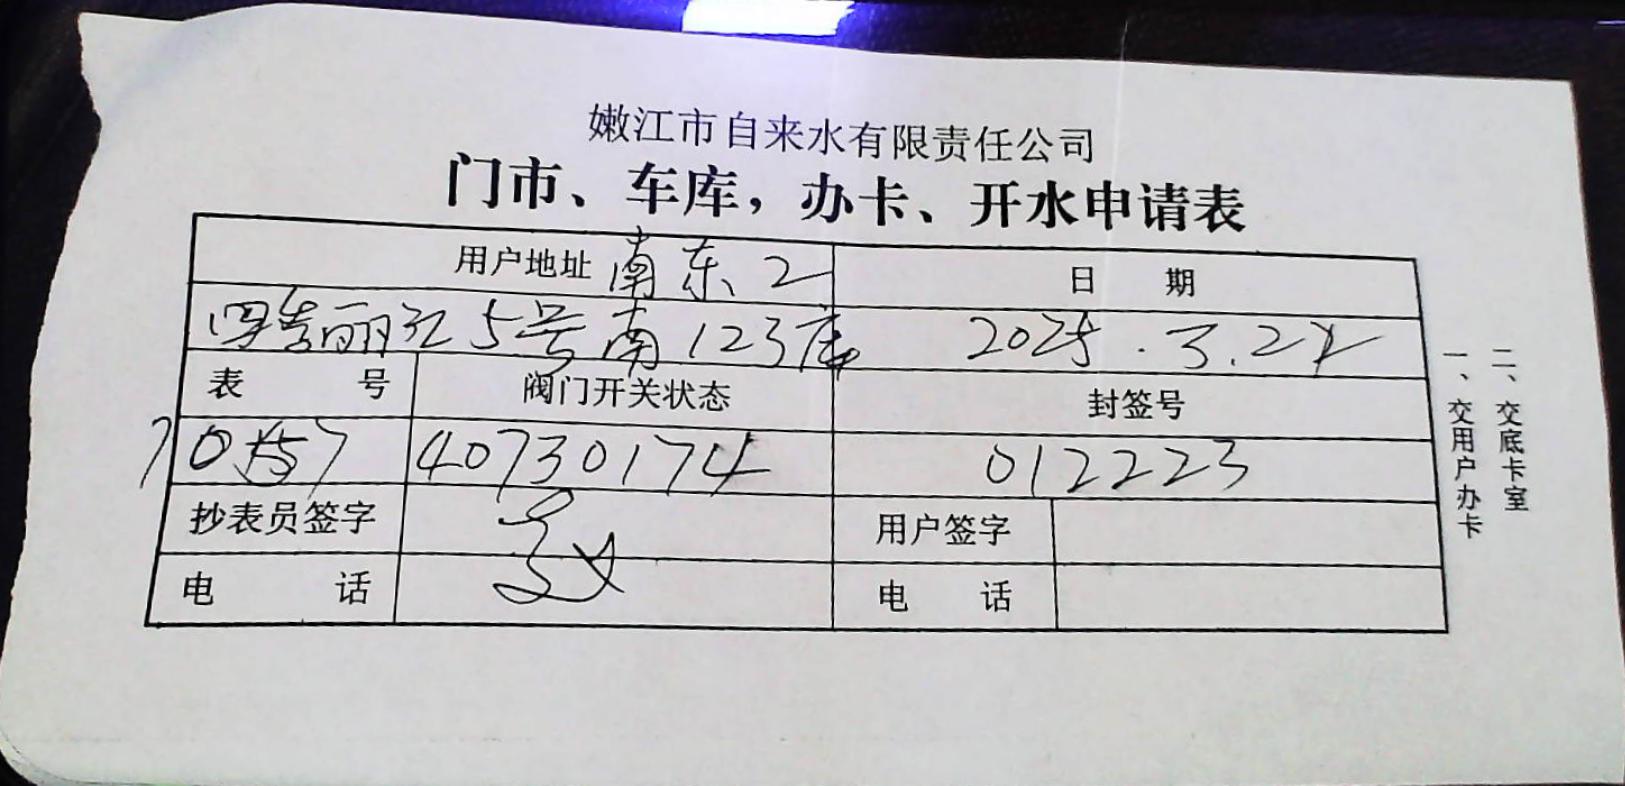 嫩江市自来水有限责任公司
门市、车库，办卡、开水申请表
用户地址 南东2
日 期
丽江5号南123库
2025.3.2
表 号
阀门开关状态
封签号
40730174
012223
抄表员签字
用户签字
电 话
电 话
一、交用户办卡
二、交底卡室